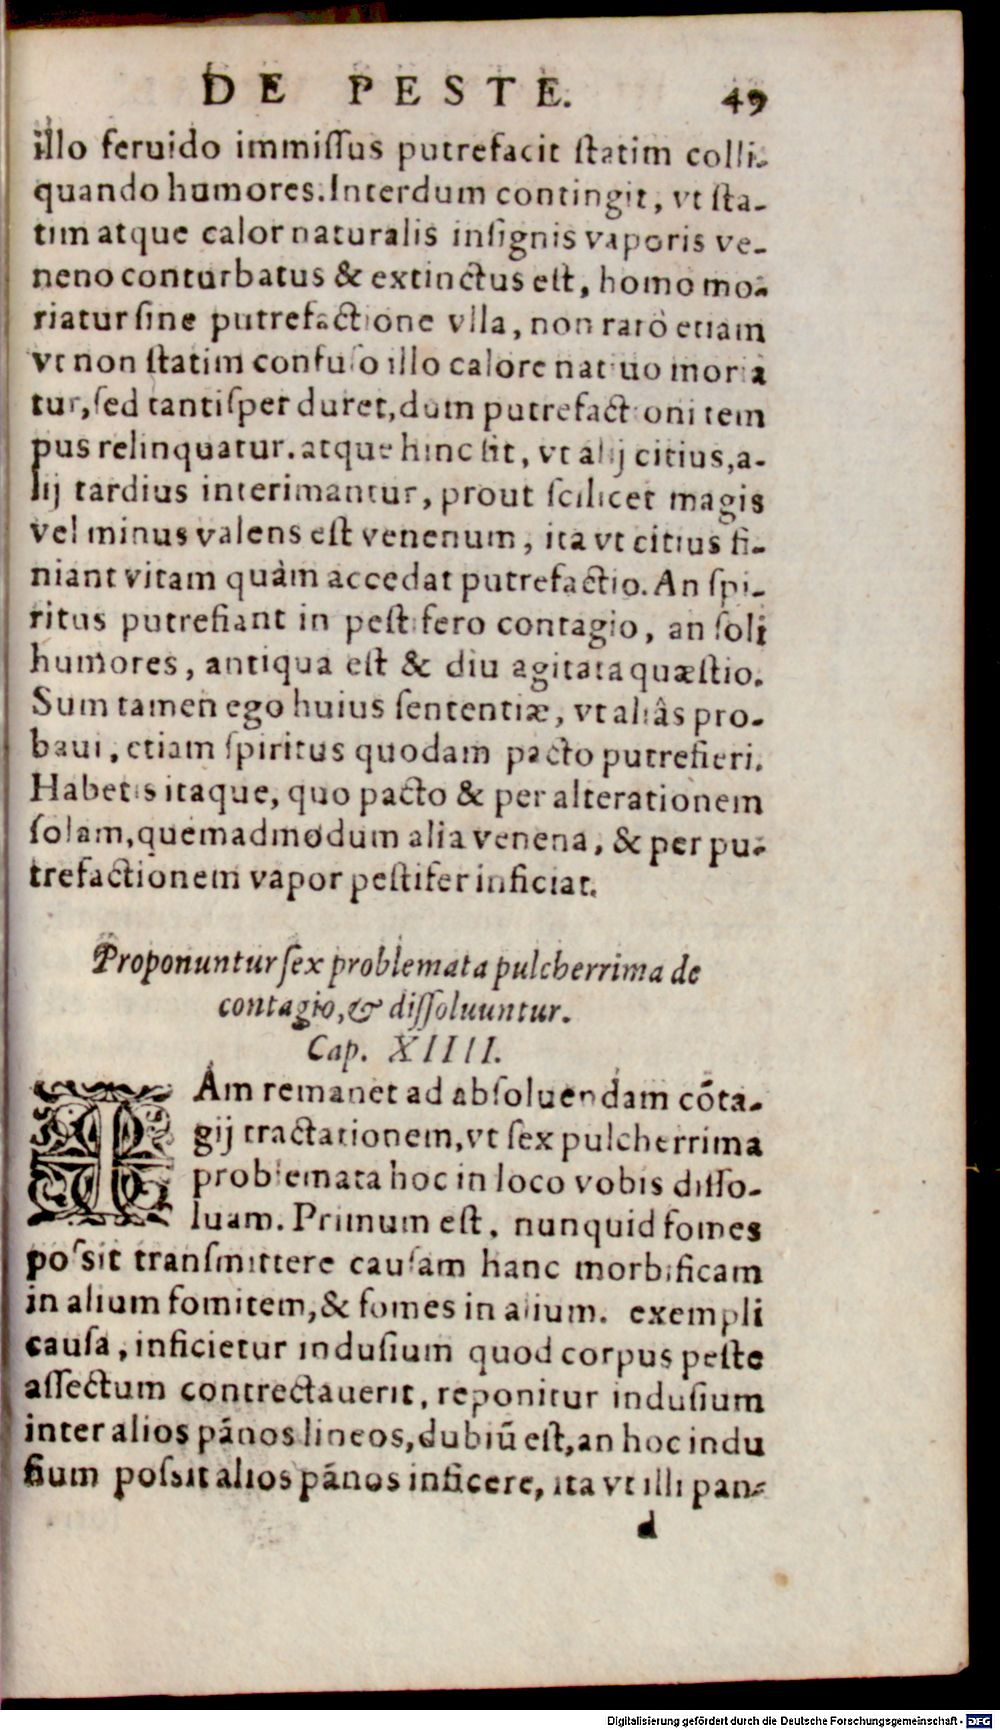 DE PESTE. 49
illo feruido immiſſus putrefacit ſtatim colli-
quando humores. Interdum contingit, vt ſta-
tim atque calor naturalis inſignis vaporis ve-
neno conturbatus & extinctus eſt, homo mo-
riatur ſine putrefactione vlla, non rarò etiam
vt non ſtatim confuſo illo calore natiuo moria
tur, ſed tantiſper duret, dum putrefactioni tem
pus relinquatur. atque hinc fit, vt alij citius, a-
lij tardius interimantur, prout ſcilicet magis
vel minus valens eſt venenum, ita vt citius fi-
niant vitam quàm accedat putrefactio. An ſpi-
ritus putrefiant in peſtifero contagio, an ſoli
humores, antiqua eſt & diu agitata quæſtio.
Sum tamen ego huius ſententiæ, vt aliâs pro-
baui, etiam ſpiritus quodam pacto putrefieri.
Habetis itaque, quo pacto & per alterationem
ſolam, quemadmodum alia venena, & per pu-
trefactionem vapor peſtifer inficiat.
Proponuntur ſex problemata pulcherrima de
contagio, & diſſoluuntur.
Cap. XIIII.
IAm remanet ad abſoluendam cōta-
gij tractationem, vt ſex pulcherrima
problemata hoc in loco vobis diſſo-
luam. Primum eſt, nunquid fomes
poſsit tranſmittere cauſam hanc morbificam
in alium fomitem, & fomes in alium. exempli
cauſa, inficietur induſium quod corpus peſte
affectum contrectauerit, reponitur induſium
inter alios pānos lineos, dubiū eſt, an hoc indu
ſium poſsit alios pānos inficere, ita vt illi pan-
d
Digitalisierung gefördert durch die Deutsche Forschungsgemeinschaft - DFG